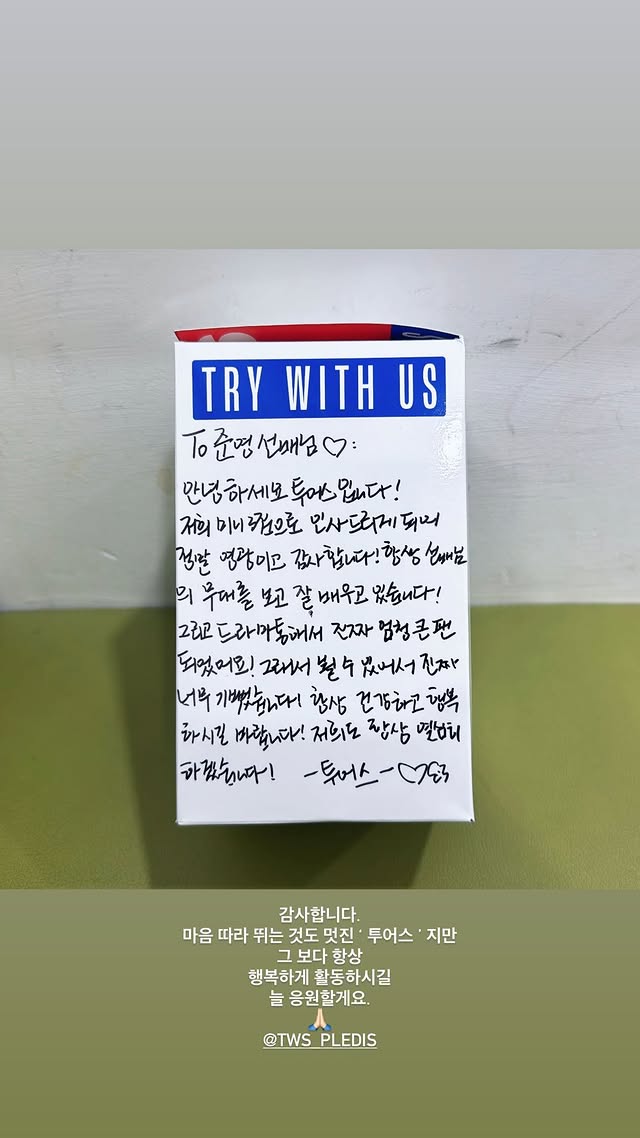 TRY WITH US
To 준영 선배님♡:
안녕하세요 투어스입니다!
저희 미니 1집으로 인사드리게 되어
정말 영광이고 감사합니다! 항상 선배님
의 무대를 보고 잘 배우고 있습니다!
그리고 드라마 통해서 진짜 엄청 큰 팬
되었어요! 그래서 뵐 수 있어서 진짜
너무 기뻤습니다! 항상 건강하고 행복
하시길 바랍니다! 저희도 항상 열심히
하겠습니다! -투어스-♡
감사합니다.
마음 따라 뛰는 것도 멋진 ‘ 투어스 ’ 지만
그 보다 항상
행복하게 활동하시길
늘 응원할게요.
🙏🏻
@TWS_PLEDIS